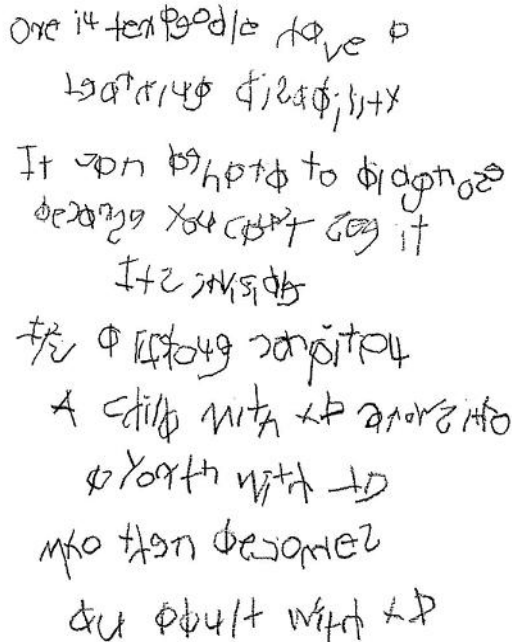 One in ten people have a
learning disability
It can be hard to diagnose
because you can't see it
Its invisible
It's a lifelong condition
A child with LD grows into
a youth with LD
who then becomes
an adult with LD